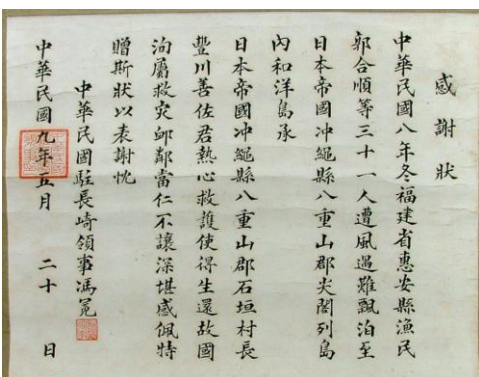 感謝狀
中華民國八年冬福建省惠安縣漁民
郭合順等三十一人遭風遇難飄泊至
日本帝國沖繩縣八重山郡尖閣列島
內和洋島承
日本帝國沖繩縣八重山郡石垣村長
豐川善佐君熱心救護使得生還故國
洵屬救災邮鄰當仁不讓深堪感佩特
贈斯狀以表謝忱
中華民國駐長崎領事馮冕
中華民國九年五月二十日